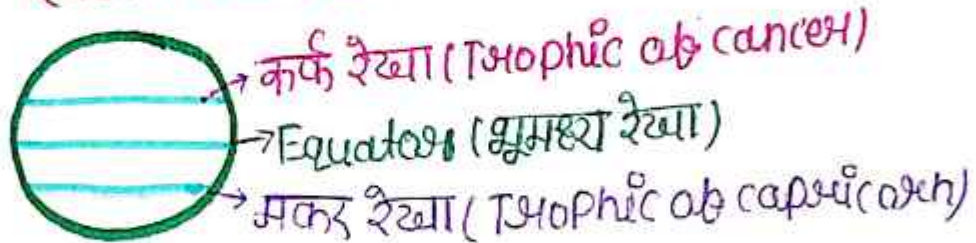 कर्क रेखा (Trophic of cancer)
Equator (भूमध्य रेखा)
मकर रेखा (Trophic of capricorn)